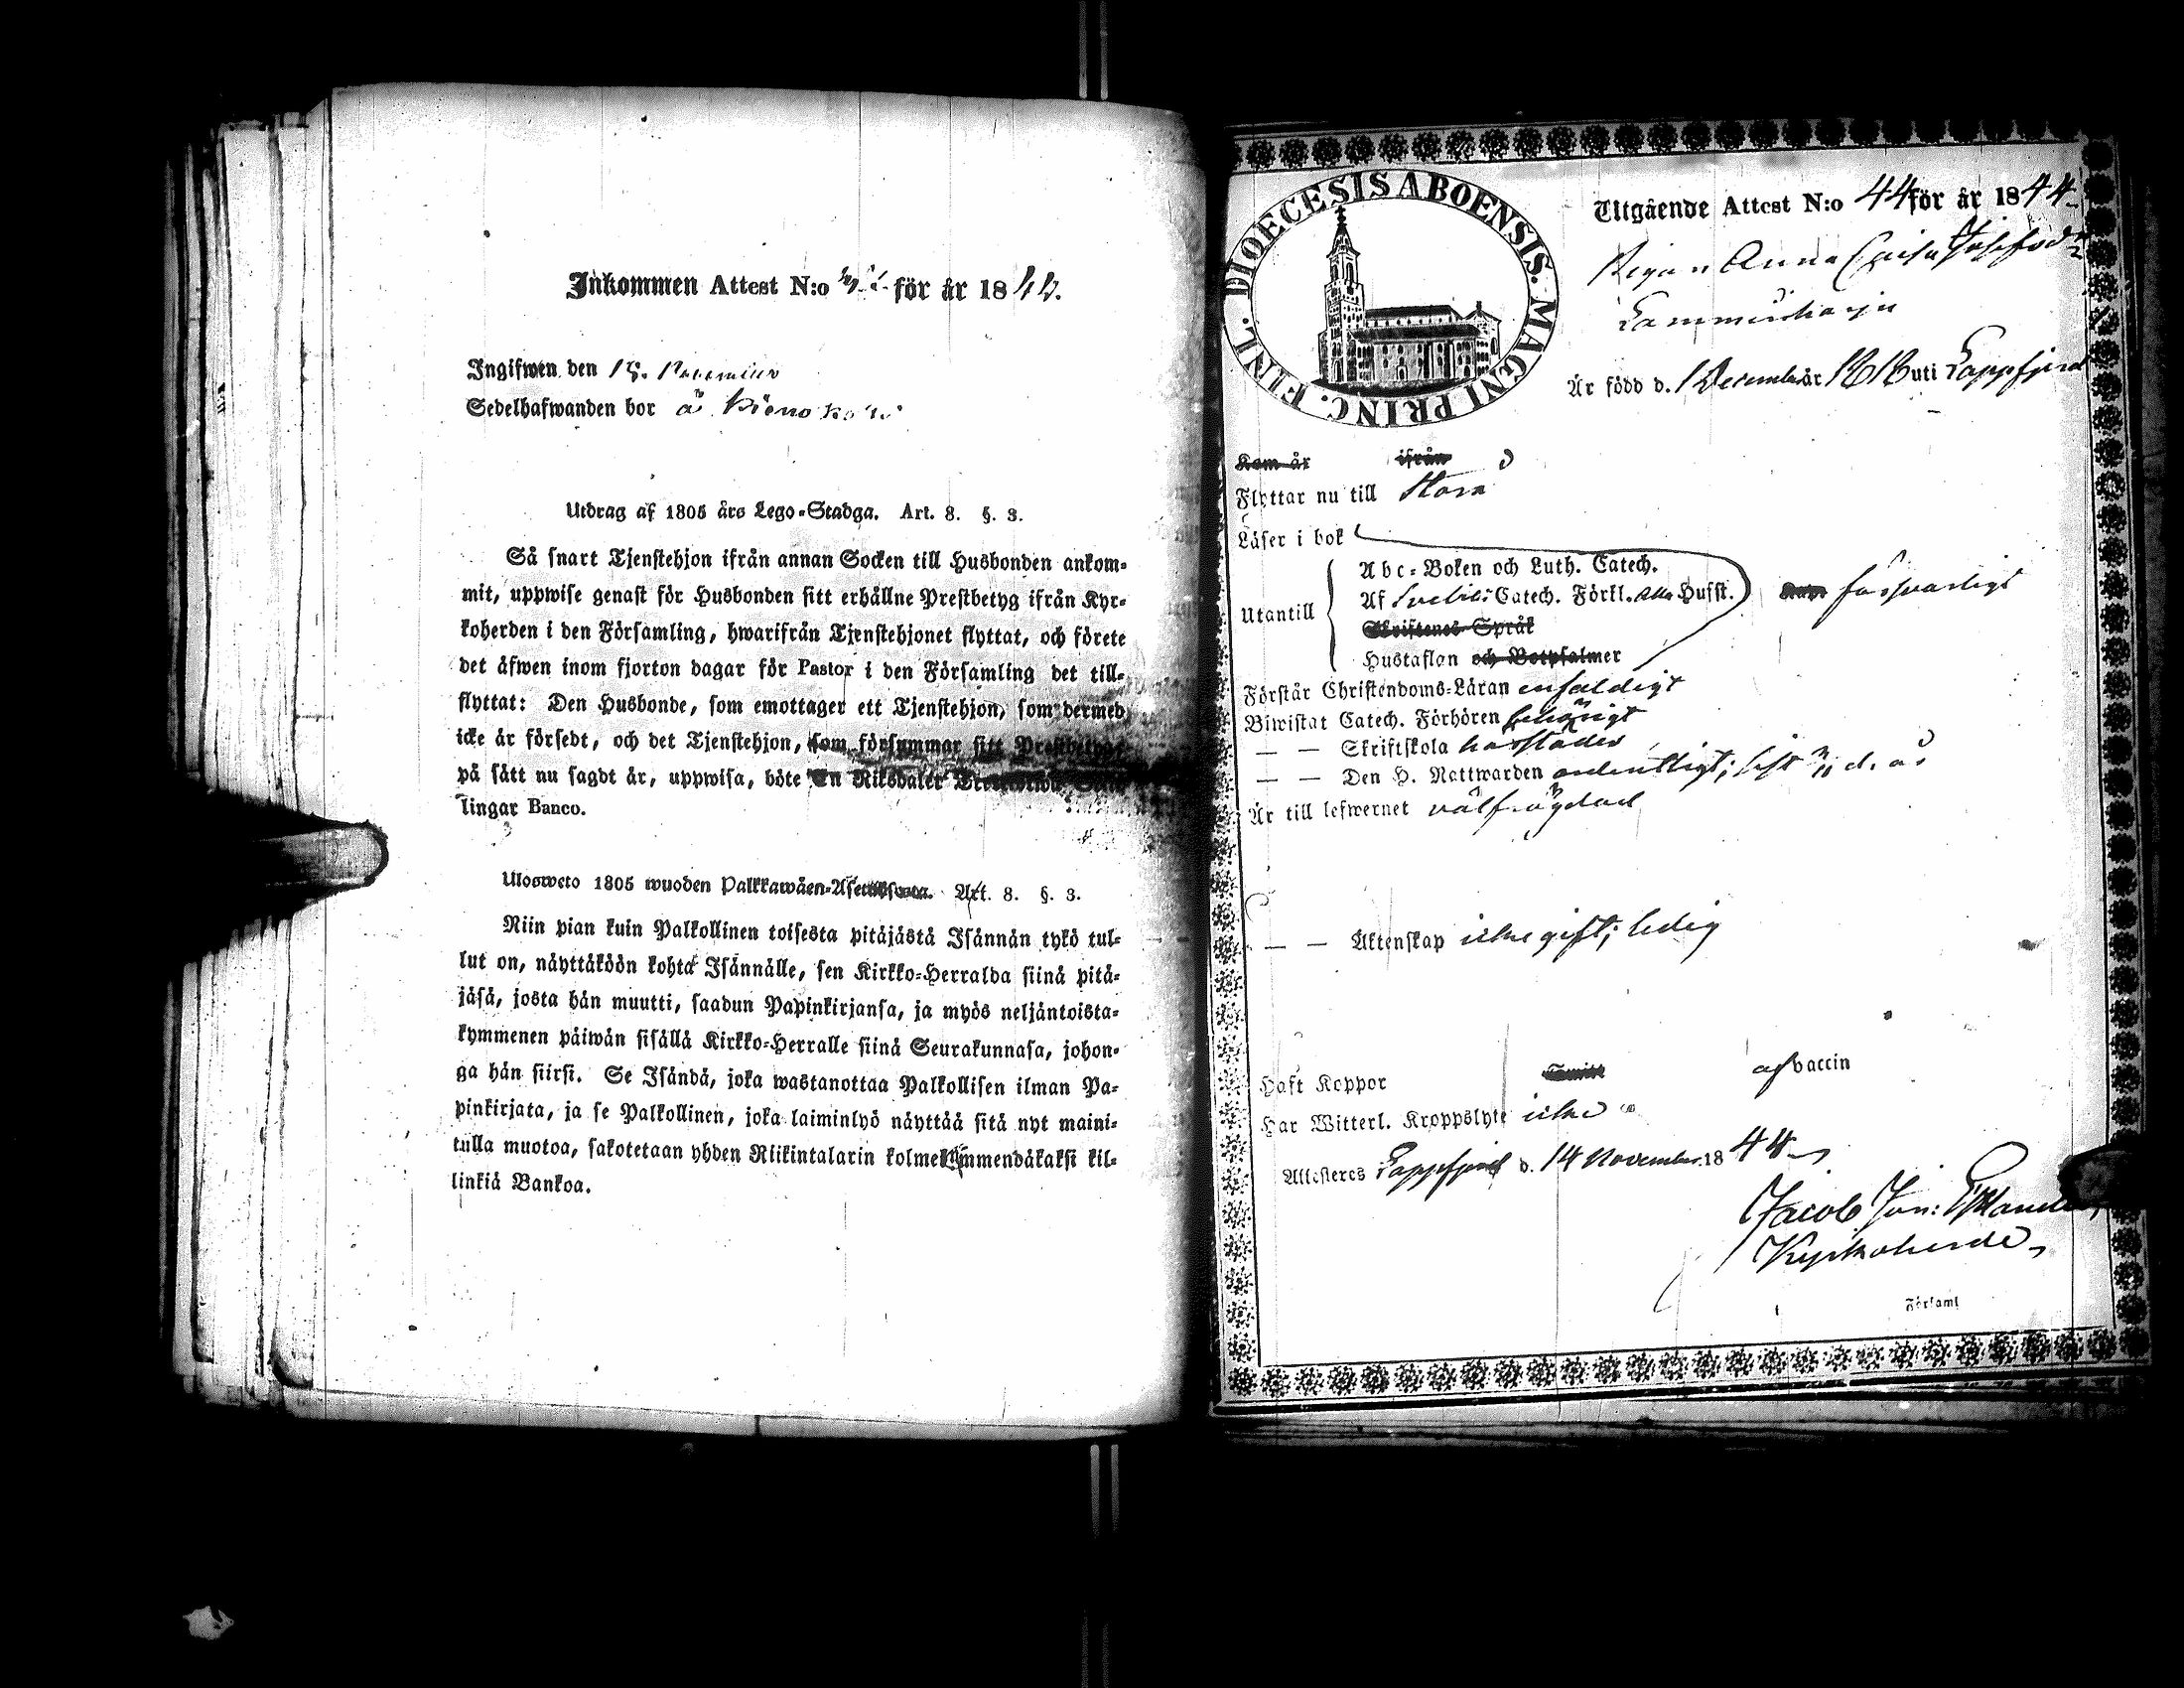 Inkommen Attest N:o för år 18
Ingifwen den
Sedelhafwanden bor å
Utdrag af 1805 års Lego-Stadga. Art. 8. §. 3.
Så snart Tjenstehjon ifrån annan Socken till Husbonden ankom-
mit, uppwise genast för Husbonden sitt erhållne Prestbetyg ifrån Kyr-
koherden i den Församling, hwarifrån Tjenstehjonet flyttat, och förete
det äfwen inom fjorton dagar för Pastor i den Församling det till-
flyttat: Den Husbonde, som emottager ett Tjenstehjon, som dermed
icke är försedt, och det Tjenstehjon, som försummar sitt Prestbetyg,
på sätt nu sagdt är, uppwisa, böte En Riksdaler
lingar Banco.
Ulosweto 1805 wuoden Palkkawäen-Asetuksesta. Art. 8. §. 3.
Niin pian kuin Palkollinen toisesta pitäjästä Isännän tykö tul-
lut on, näyttäköön kohta Isännälle, sen Kirkko-Herralda siinä pitä-
jäsä, josta hän muutti, saadun Papinkirjansa, ja myös neljäntoista-
kymmenen päiwän sisällä Kirkko-Herralle siinä Seurakunnasa, johon-
ga hän siirsi. Se Isändä, joka wastanottaa Palkollisen ilman Pa-
pinkirjata, ja se Palkollinen, joka laiminlyö näyttää sitä nyt maini-
tulla muotoa, sakotetaan yhden Riikintalarin kolmekymmendäkaksi kil-
linkiä Bankoa.
DIOECESIS ABOENSIS. MAGNI PRINC. FINL.
Utgående Attest N:o 44 för år 1844
Pigan Anna Cajsa Josefsd:r
Är född d. 1 December år 1818 uti Lappfjerd
Kom år ifrån
Flyttar nu till Storå
Läser i bok
Abc-Boken och Luth. Catech.
Utantill Af Svebilii Catech. Förkl. Husst. försvarligt
Skriftenes Språk
Hustaflan och Botpsalmer
Förstår Christendoms-Läran enfaldigt
Biwistat Catech. Förhören behörigt
— — Skriftskola härstädes
— — Den H. Nattwarden ordentligt; sist d. å.
Är till lefwernet välfrägdad
— — Äktenskap icke gift; ledig
Haft Koppor af vaccin
Har Witterl. Kroppslyte icke
Attesteres Lappfjerd d. 14 November 1844
Jacob Jon:
Kyrkoherde
Församl